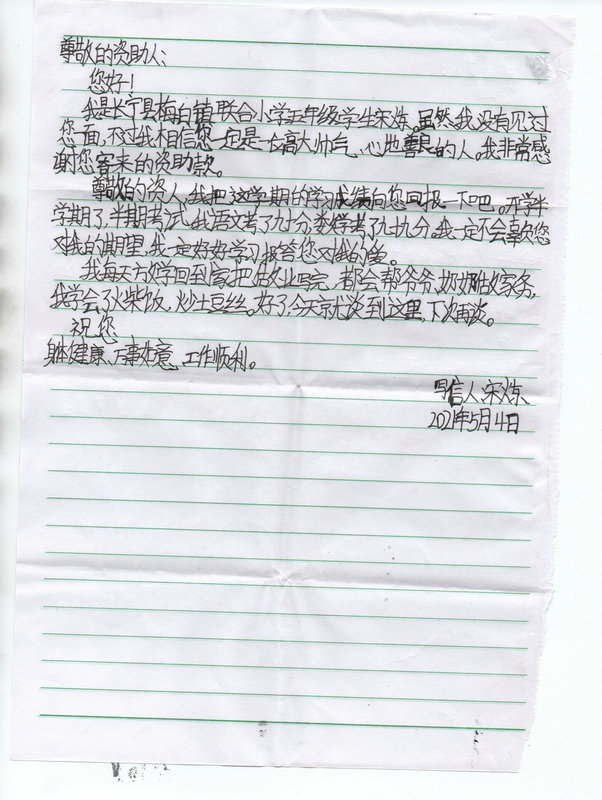 尊敬的资助人:
您好!
我是长宁县梅白镇联合小学五年级学生宋炼。虽然我没有见过
您一面,不过我相信您一定是一右高大帅气、心地善良的人。我非常感
谢您客来的资助款。
尊敬的资人,我把这学期的学习成绩向您回报一下吧。开学半
学期了,半期考试,我语文考了九十分,数学考了九十九分。我一定不会辜欠您
对我的期望,我一定好好学习报答您对我的
我每天方文学回到家把作业写完,都会帮爷爷,奶奶做家务,
我学会了火柴饭,炒土豆丝。好了,今天就谈到这里,下次再谈。
祝您
身体健康、万事如意、工作顺利。
写信人:宋炼
2021年5月4日